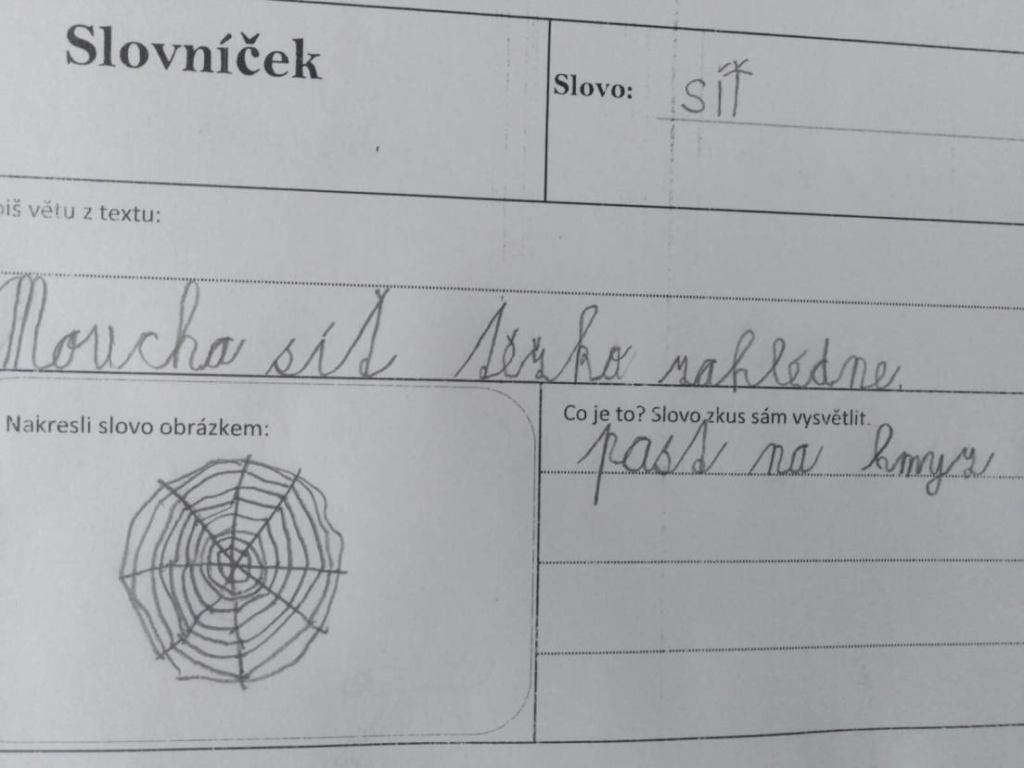 Slovníček
Slovo: síť
piš větu z textu:
Moucha síť těžko nahlédne.
Nakresli slovo obrázkem:
Co je to? Slovo zkus sám vysvětlit.
past na hmyz